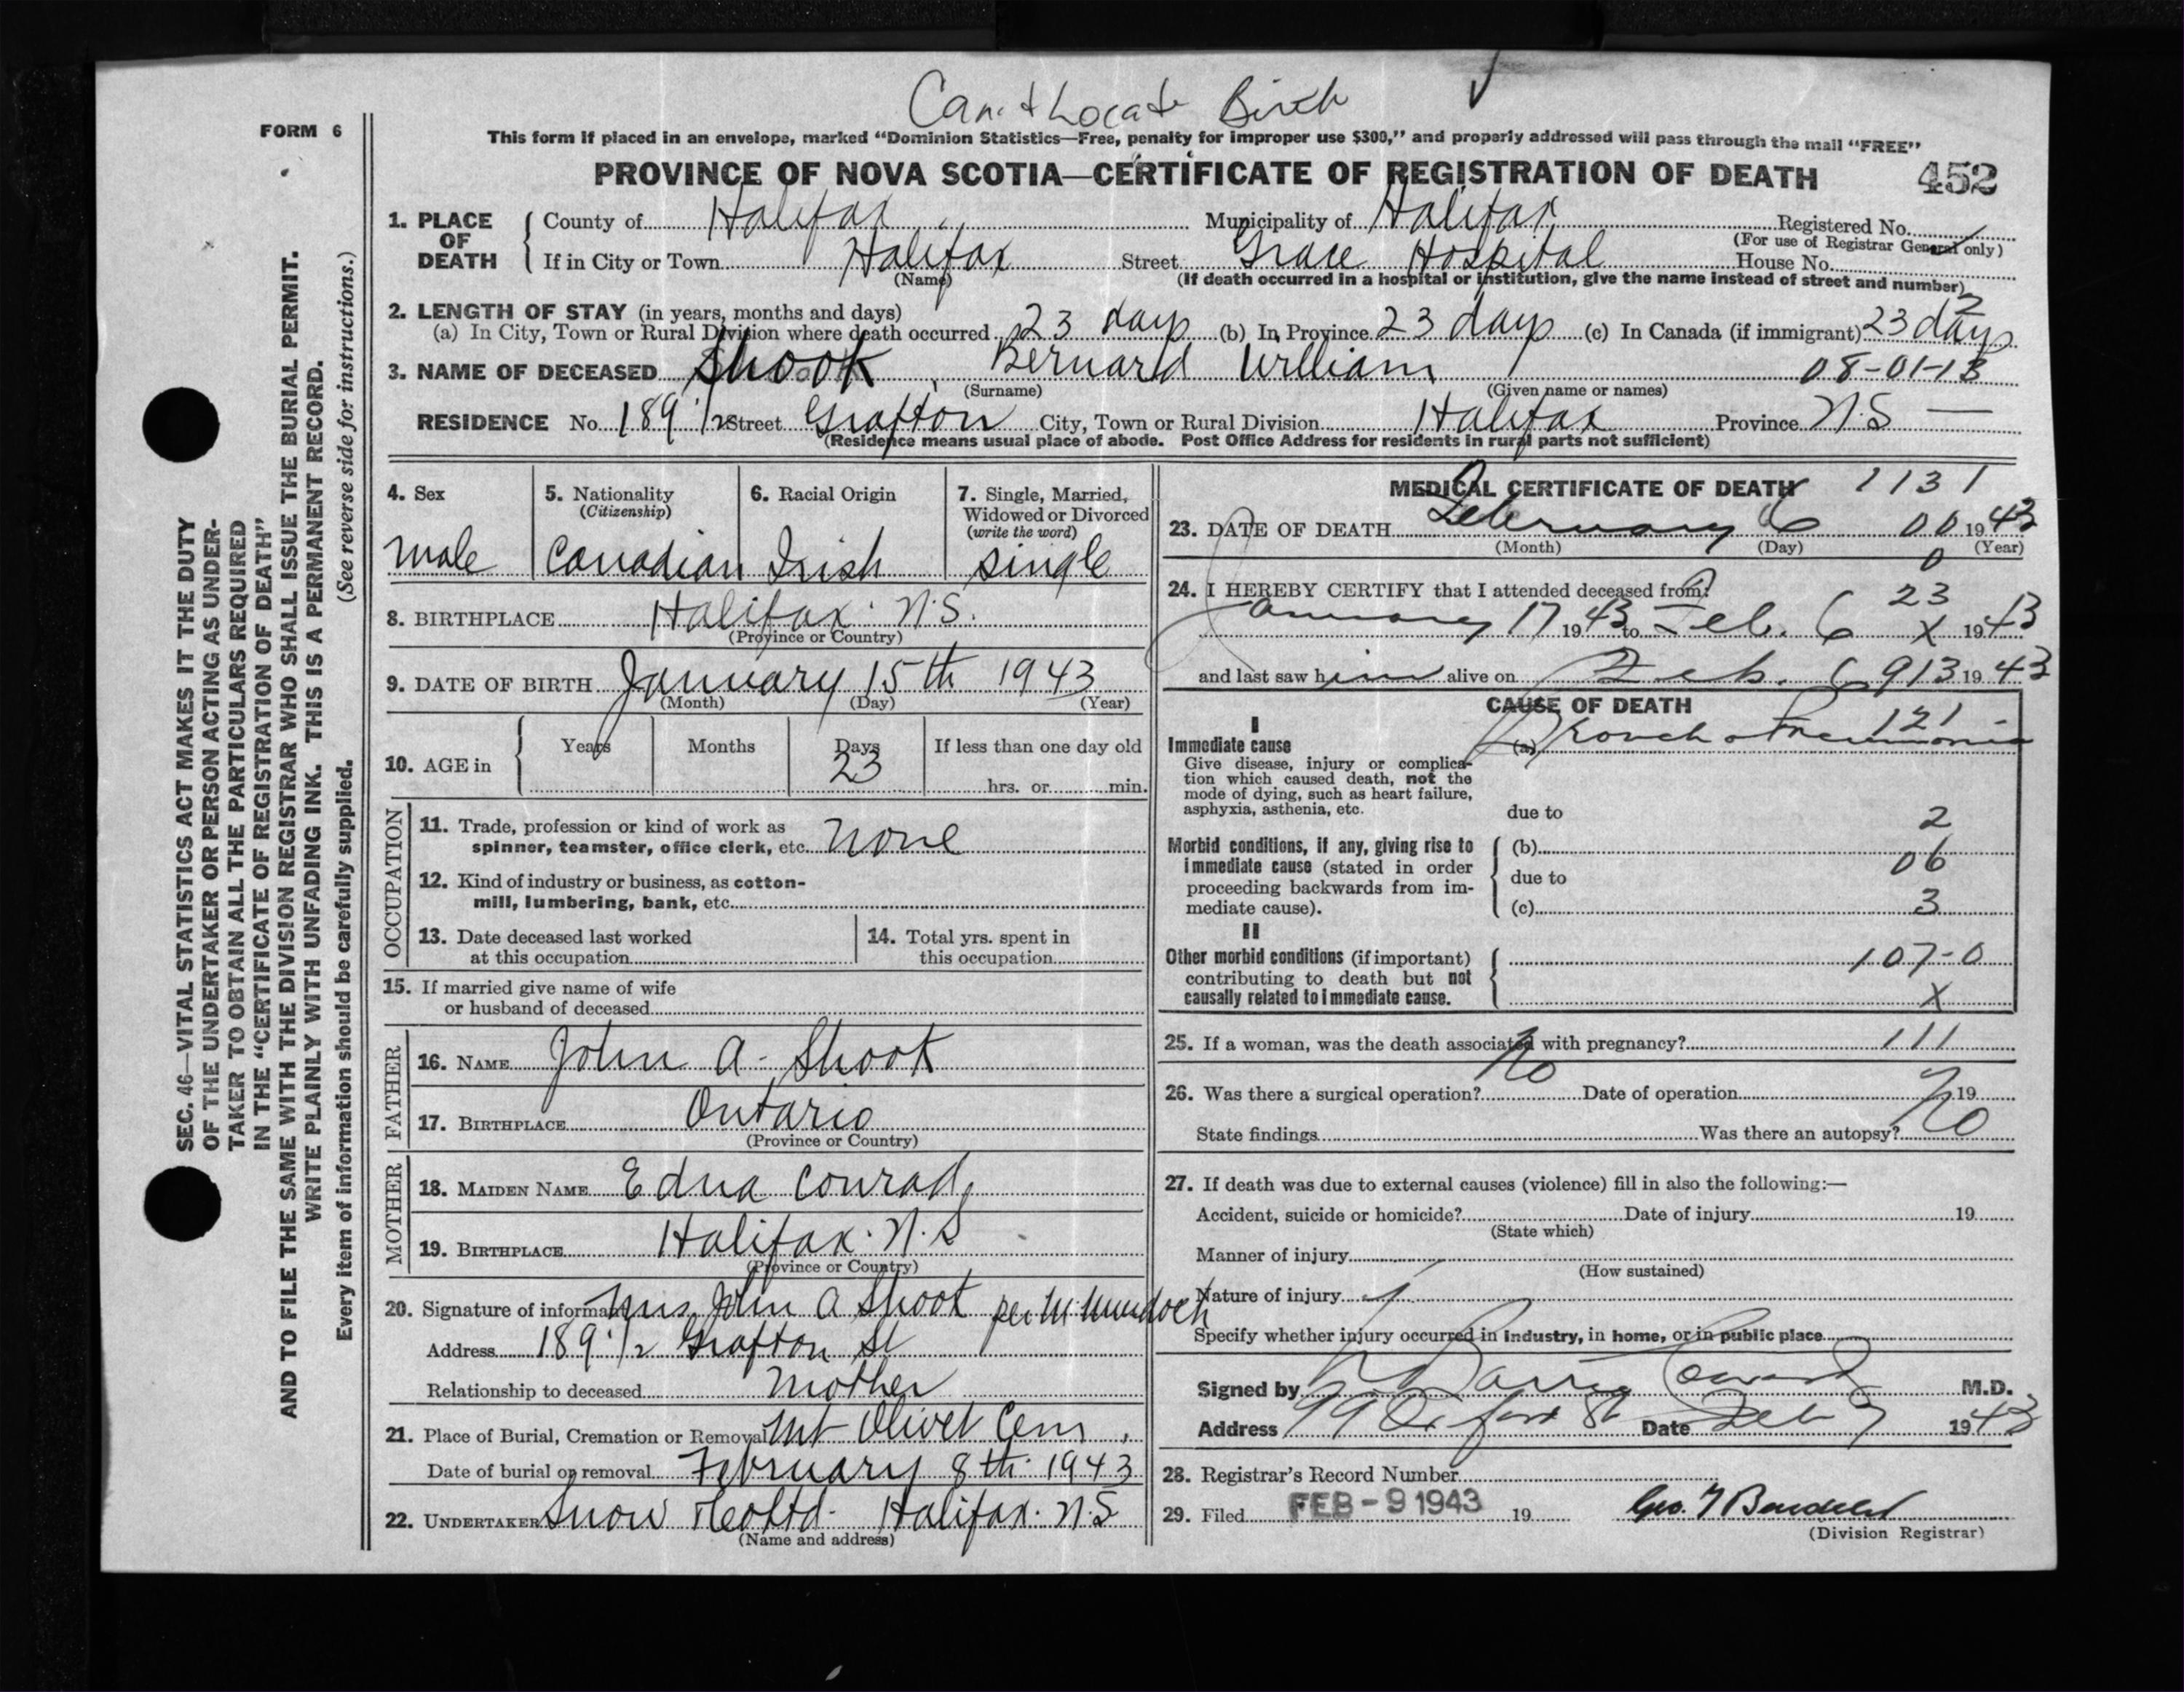 Can't Locate Birth
FORM 6
This form if placed in an envelope, marked "Dominion Statistics—Free, penalty for improper use $300," and properly addressed will pass through the mail "FREE"
PROVINCE OF NOVA SCOTIA—CERTIFICATE OF REGISTRATION OF DEATH 452
1. PLACE OF DEATH County of Halifax Municipality of Halifax Registered No.
(For use of Registrar General only)
If in City or Town Halifax Street Grace Hospital House No.
(Name) (If death occurred in a hospital or institution, give the name instead of street and number)
2. LENGTH OF STAY (in years, months and days)
(a) In City, Town or Rural Division where death occurred 23 days (b) In Province 23 days (c) In Canada (if immigrant) 23 days
3. NAME OF DECEASED Shook, Bernard William 08-01-13
(Surname) (Given name or names)
RESIDENCE No. 189 1/2 Street Grafton City, Town or Rural Division Halifax Province N.S —
(Residence means usual place of abode. Post Office Address for residents in rural parts not sufficient)
4. Sex
male
5. Nationality
(Citizenship)
Canadian
6. Racial Origin
Irish
7. Single, Married,
Widowed or Divorced
(write the word)
single
8. BIRTHPLACE Halifax. N.S.
(Province or Country)
9. DATE OF BIRTH January 15th 1943
(Month) (Day) (Year)
10. AGE in Years Months Days If less than one day old
23 hrs. or min.
OCCUPATION
11. Trade, profession or kind of work as
spinner, teamster, office clerk, etc. none
12. Kind of industry or business, as cotton-
mill, lumbering, bank, etc.
13. Date deceased last worked
at this occupation
14. Total yrs. spent in
this occupation
15. If married give name of wife
or husband of deceased
FATHER
16. NAME John A. Shook
17. BIRTHPLACE Ontario
(Province or Country)
MOTHER
18. MAIDEN NAME Edna Conrad
19. BIRTHPLACE Halifax. N.S
(Province or Country)
20. Signature of informant Mrs. John A Shook per M. Murdoch
Address 189 1/2 Grafton St
Relationship to deceased Mother
21. Place of Burial, Cremation or Removal Mt Olivet Cem,
Date of burial or removal February 8th 1943
22. UNDERTAKER Snow & Co Ltd. Halifax. N.S
(Name and address)
MEDICAL CERTIFICATE OF DEATH 1131
23. DATE OF DEATH February 6 00 1943
(Month) (Day) (Year)
0
24. I HEREBY CERTIFY that I attended deceased from:
23
January 17 1943 to Feb. 6 X 1943
and last saw him alive on Feb. 6 913 1943
CAUSE OF DEATH
121 -
I
Immediate cause (a) Broncho Pneumonia
Give disease, injury or complica-
tion which caused death, not the
mode of dying, such as heart failure,
asphyxia, asthenia, etc.
due to
2
Morbid conditions, if any, giving rise to
immediate cause (stated in order
proceeding backwards from im-
mediate cause).
(b)
06
due to
(c) 3
II
Other morbid conditions (if important)
contributing to death but not
causally related to immediate cause.
107-0
X
25. If a woman, was the death associated with pregnancy? 111
26. Was there a surgical operation? No Date of operation 19
State findings Was there an autopsy? No
27. If death was due to external causes (violence) fill in also the following:—
Accident, suicide or homicide? Date of injury 19
(State which)
Manner of injury
(How sustained)
Nature of injury
Specify whether injury occurred in industry, in home, or in public place
Signed by M.D.
Address 99 Oxford St Date Feb 7 1943
28. Registrar's Record Number
29. Filed FEB - 9 1943 19
(Division Registrar)
SEC. 46—VITAL STATISTICS ACT MAKES IT THE DUTY
OF THE UNDERTAKER OR PERSON ACTING AS UNDER-
TAKER TO OBTAIN ALL THE PARTICULARS REQUIRED
IN THE "CERTIFICATE OF REGISTRATION OF DEATH"
AND TO FILE THE SAME WITH THE DIVISION REGISTRAR WHO SHALL ISSUE THE BURIAL PERMIT.
WRITE PLAINLY WITH UNFADING INK. THIS IS A PERMANENT RECORD.
Every item of information should be carefully supplied. (See reverse side for instructions.)